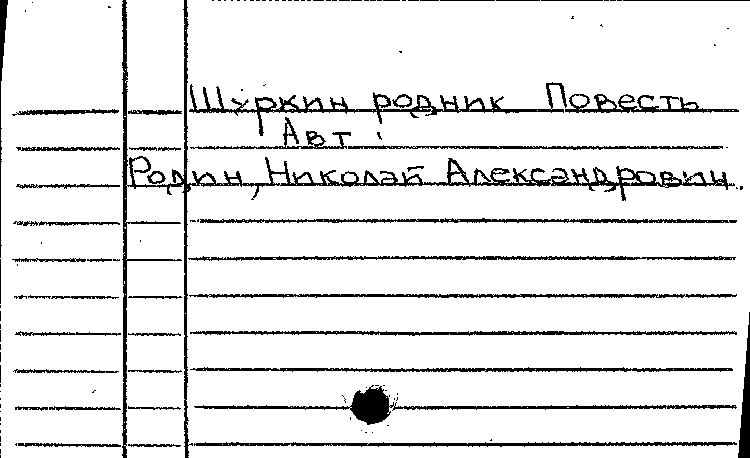 Шуркин родник Повесть
Авт.
Родин, Николай Александрович.